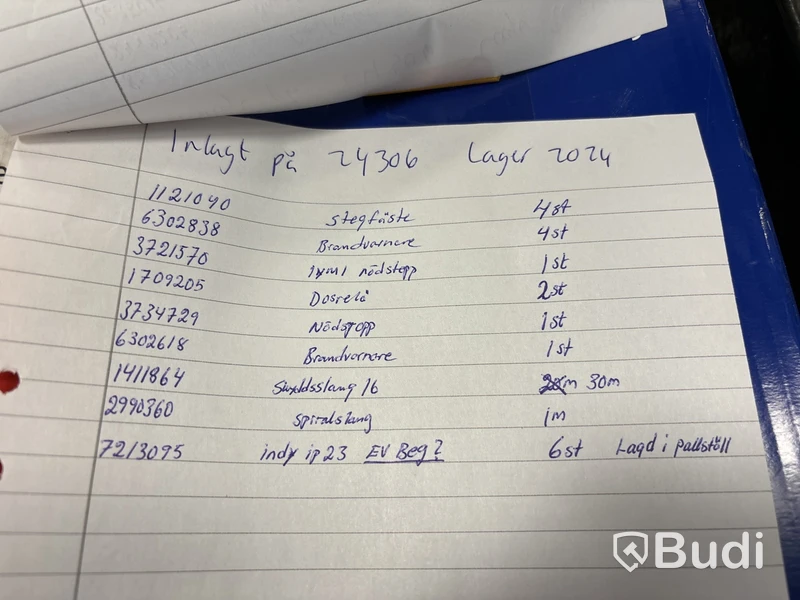 Inlagt på 24306 Lager 2024
1121040 stegfäste 4st
6302838 Brandvarnare 4st
3721570 nödstopp 1st
1709205 Dosrelä 2st
3734729 Nödspopp 1st
6302618 Brandvarnare 1st
1411864 16 30m
2990360 Spiralslang 1m
7213095 indy ip23 EV Beg? 6st Lagd i pallställ
Budi